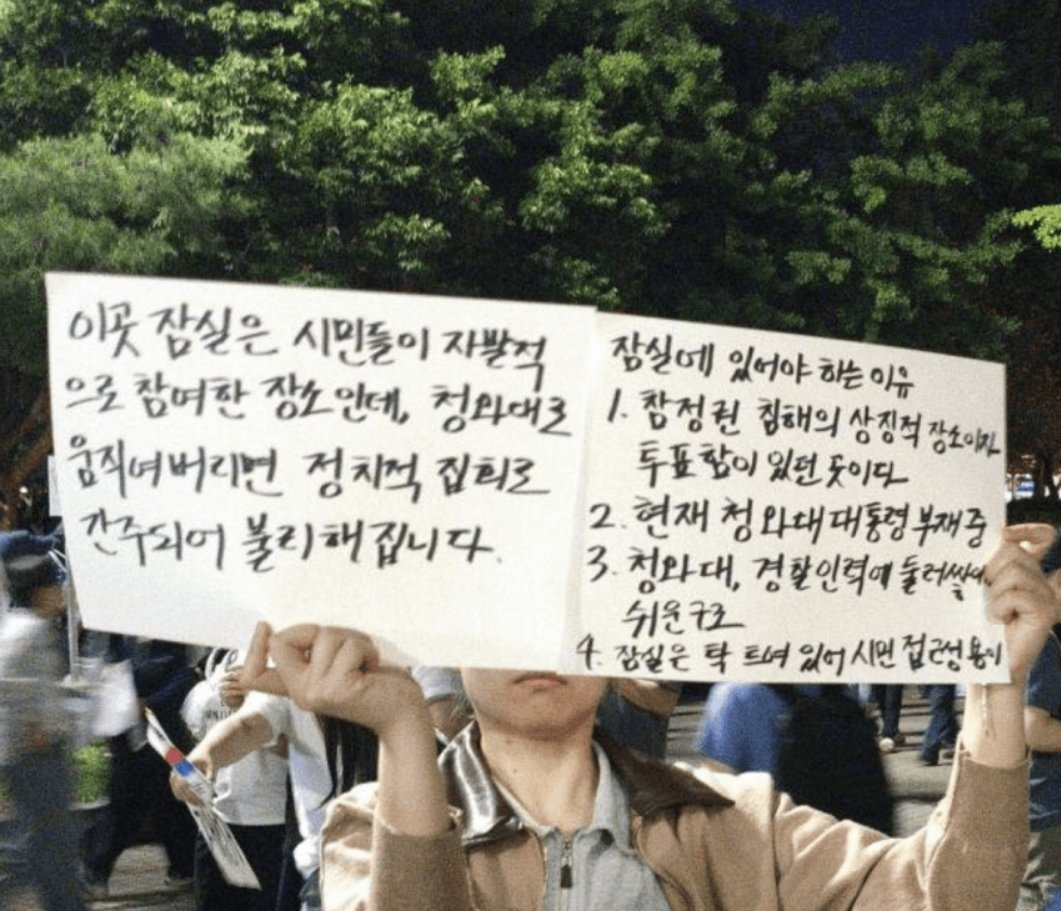 이곳 잠실은 시민들이 자발적
으로 참여한 장소인데, 청와대로
움직여버리면 정치적 집회로
간주되어 불리해집니다.
잠실에 있어야 하는 이유
1. 참정권 침해의 상징적 장소이자
투표함이 있던 곳이다
2. 현재 청와대 대통령 부재중
3. 청와대, 경찰인력에 둘러쌓이
쉬운구조
4. 잠실은 탁 트여 있어 시민 접근성 용이